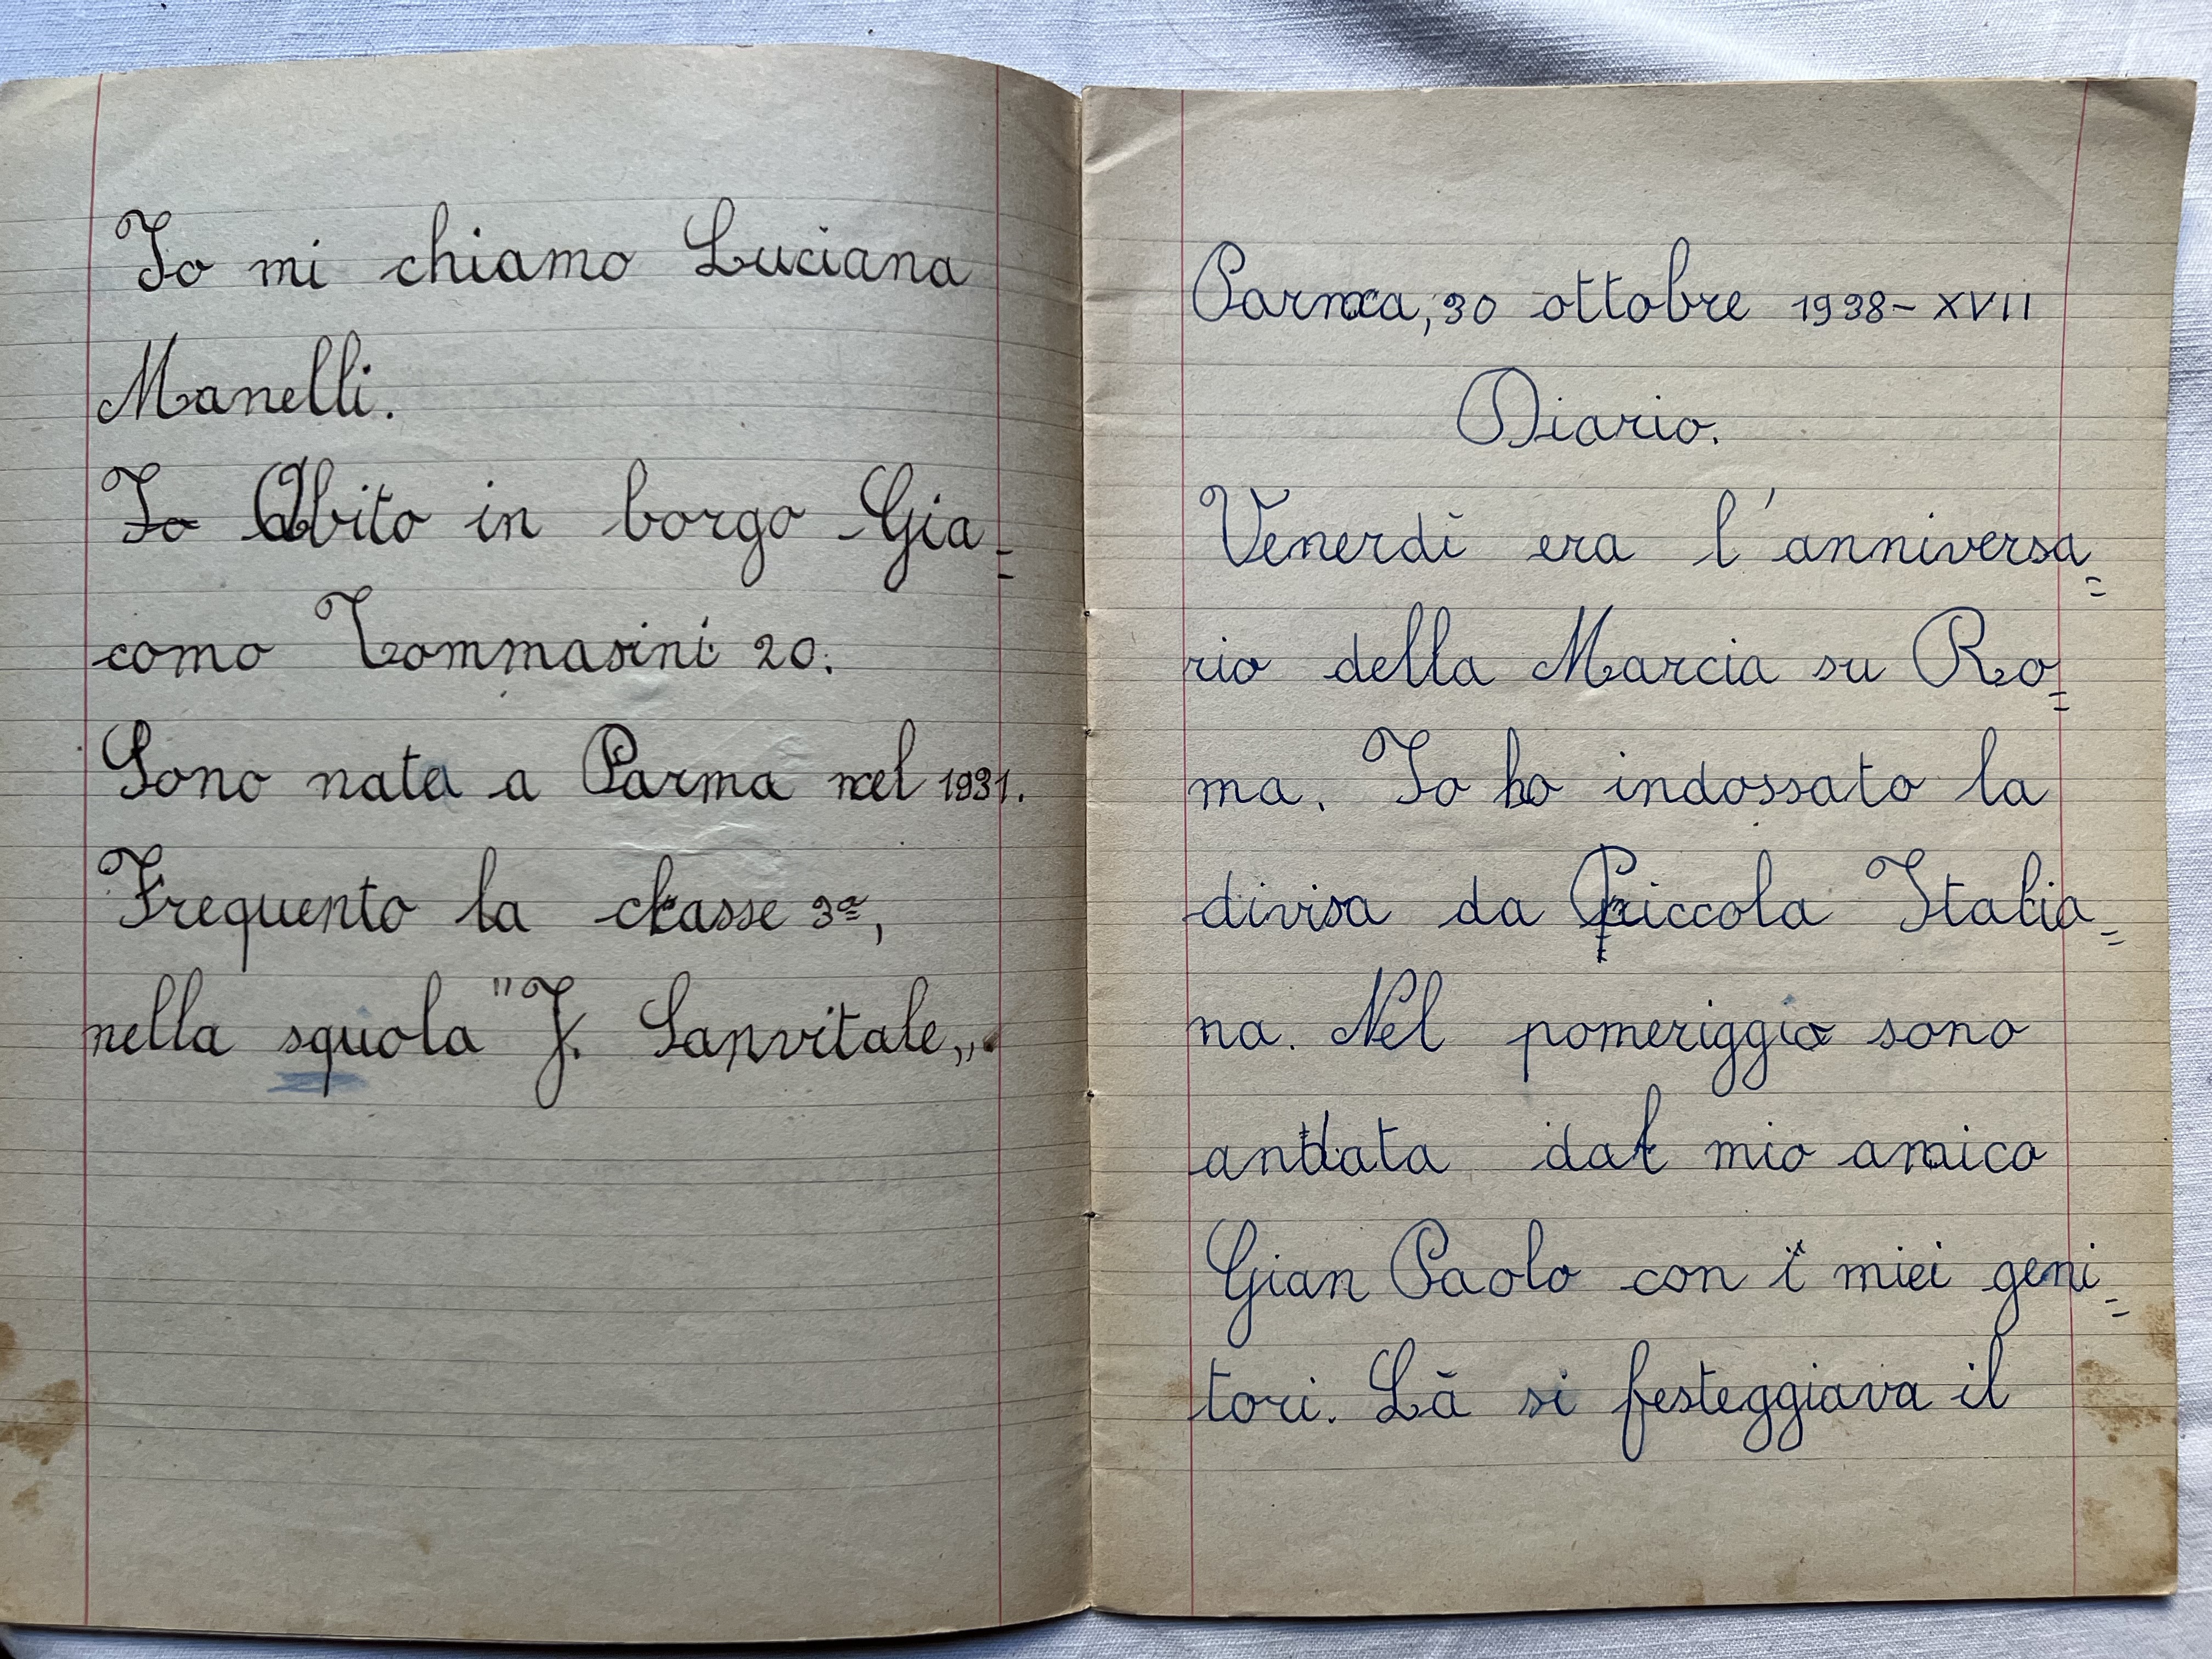 Io mi chiamo Luciana
Manelli.
Io Abito in borgo Gia=
como Tommasini 20.
Sono nata a Parma nel 1931.
Frequento la classe 3ª,
nella squola "J. Sanvitale„.
Parma, 30 ottobre 1938-XVII
Diario.
Venerdì era l'anniversa=
rio della Marcia su Ro=
ma. Io ho indossato la
divisa da Piccola Italia=
na. Nel pomeriggio sono
andata dal mio amico
Gian Paolo con i miei geni=
tori. Là si festeggiava il